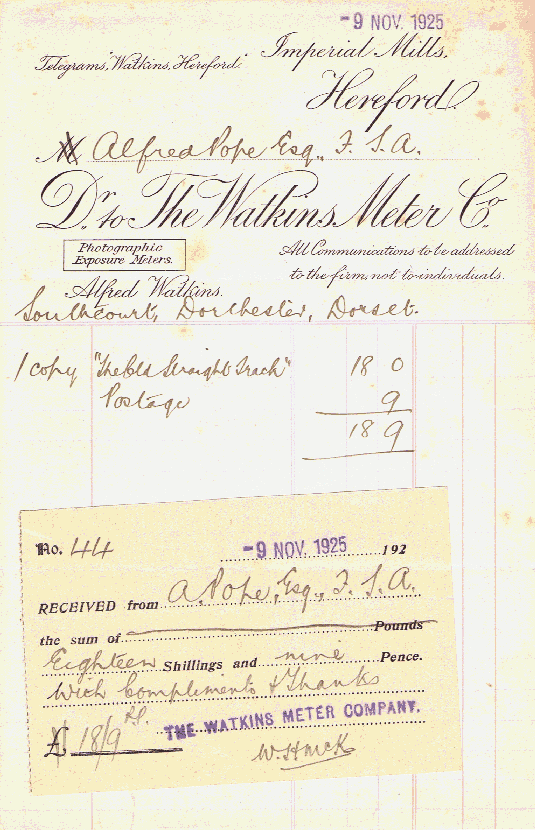 -9 NOV. 1925
Imperial Mills,
Telegrams, "Watkins, Hereford."
Hereford
M Alfred Pope Esq., F. S. A.
Dr. to The Watkins Meter Co.
Photographic
Exposure Meters.
All Communications to be addressed
to the firm, not to individuals.
Alfred Watkins.
Southcourt, Dorchester, Dorset.
1 copy "The Old Straight Track" 18 0
Postage 9
18 9
No. 44
-9 NOV. 1925 192
RECEIVED from A. Pope, Esq., F. S. A.
the sum of Pounds
Eighteen Shillings and nine Pence.
With Compliments & Thanks
£ 18/9
THE WATKINS METER COMPANY.